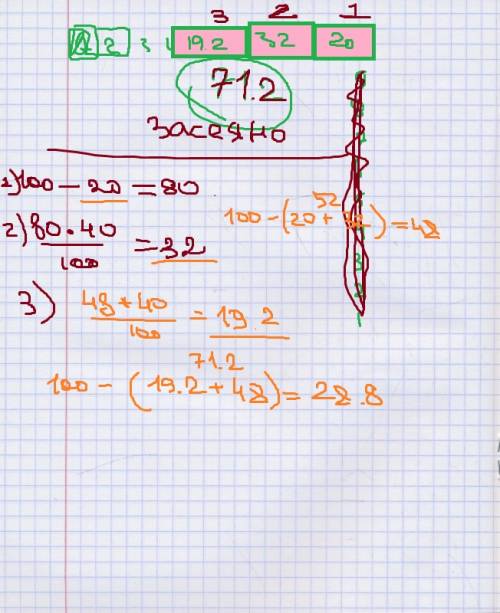 3 2 1
2 3 19.2 32 20
71.2
Засеяно
1) 100 - 20 = 80
52
100 - (20 + 32) = 48
2) 80 · 40 / 100 = 32
3) 48 * 40 / 100 = 19.2
71.2
100 - (19.2 + 48) = 28.8